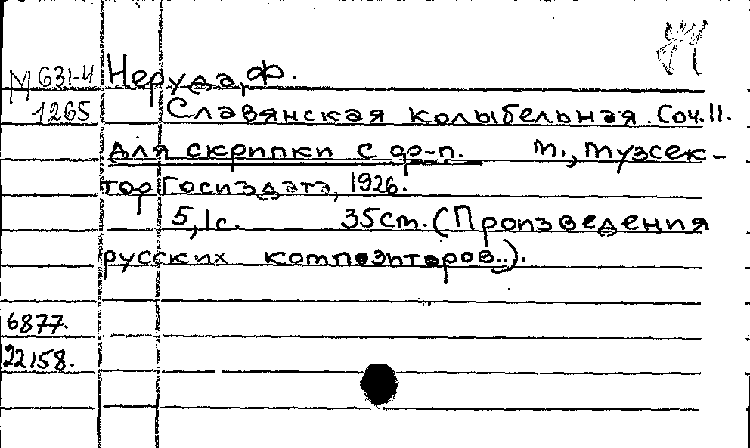 М G31-4 Неруда, Ф.
1265 Славянская колыбельная. Соч. 11.
для скрипки с ф-п. М., Музсек-
тор Госиздата, 1926.
5,1с. 35см. (Произведения
русских композиторов..).
6877.
22158.